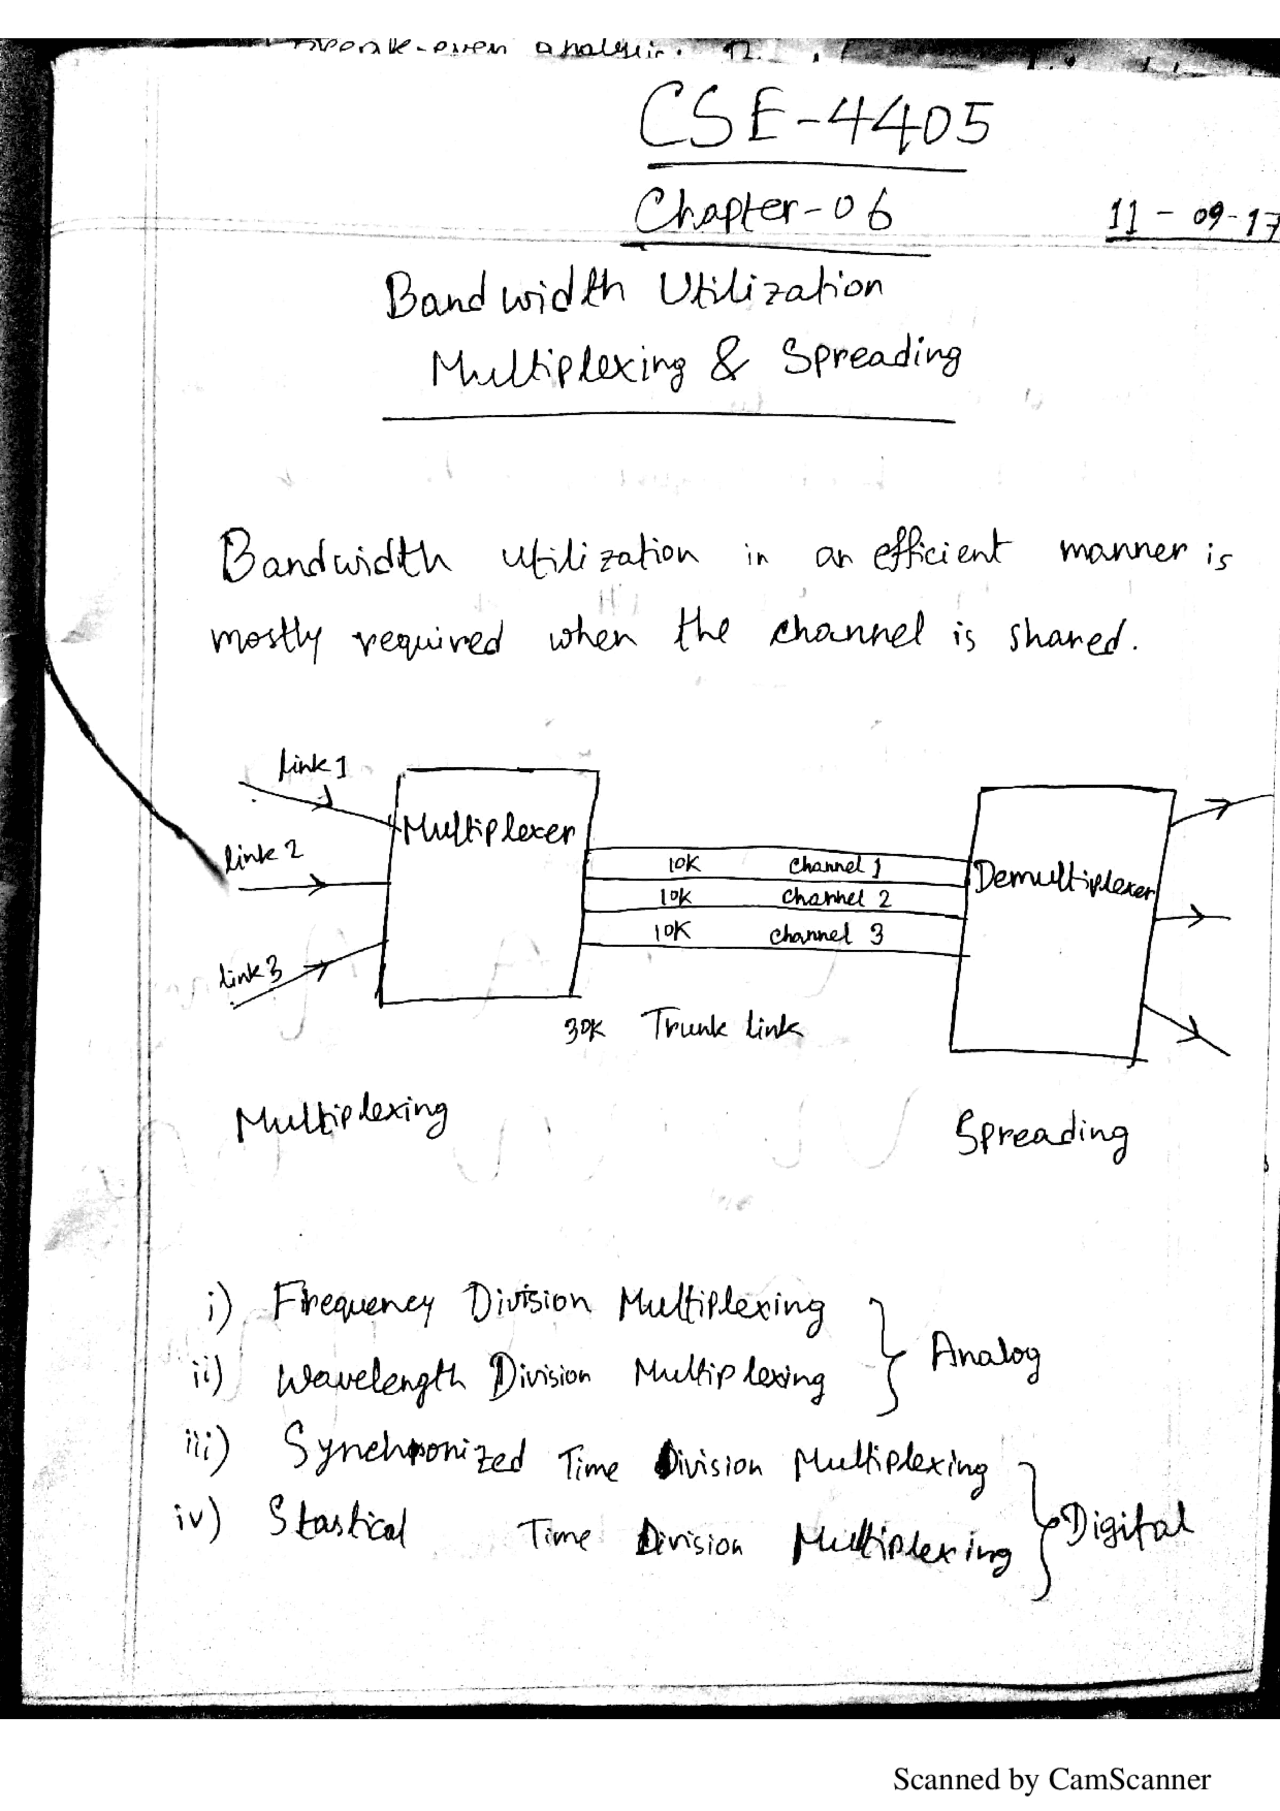 Break-even analysis. 12.
CSE-4405
Chapter-06
11-09-17
Bandwidth Utilization
Multiplexing & Spreading
Bandwidth utilization in an efficient manner is
mostly required when the channel is shared.
link 1
link 2
link 3
Multiplexer
10K channel 1
10K channel 2
10K channel 3
Demultiplexer
30K Trunk link
Multiplexing
Spreading
i) Frequency Division Multiplexing
ii) Wavelength Division Multiplexing
Analog
iii) Synchronized Time Division Multiplexing
iv) Stastical Time Division Multiplexing
Digital
Scanned by CamScanner